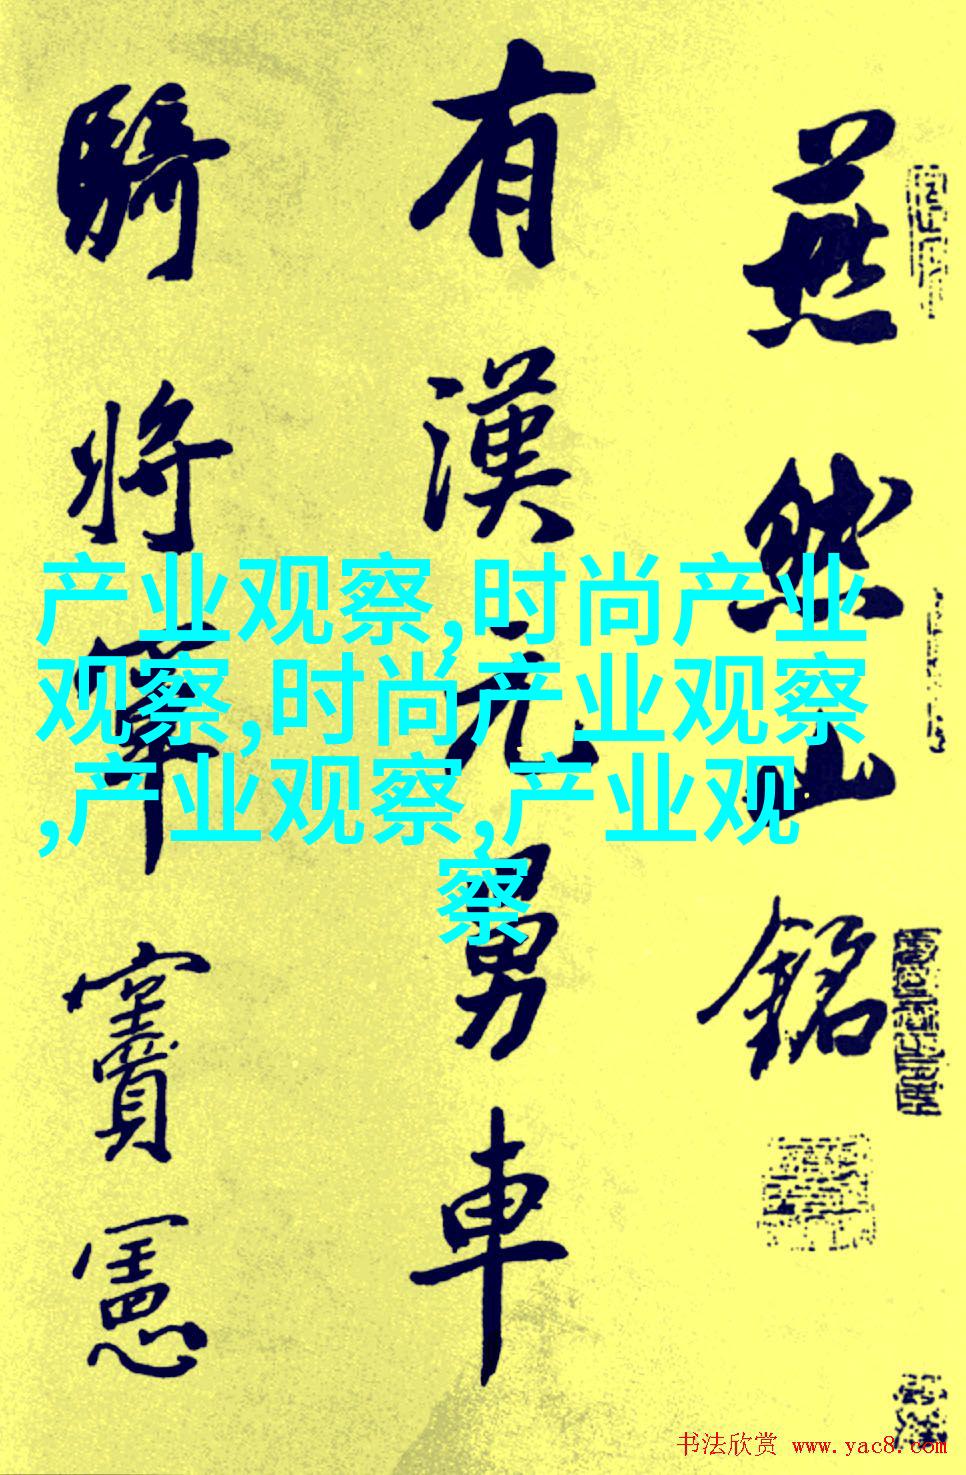 燕然山銘
有漢元舅車
騎將軍竇憲
产业观察,时尚产业
观察,时尚产业观察
,产业观察,产业观
察
书法欣赏 www.yac8.com